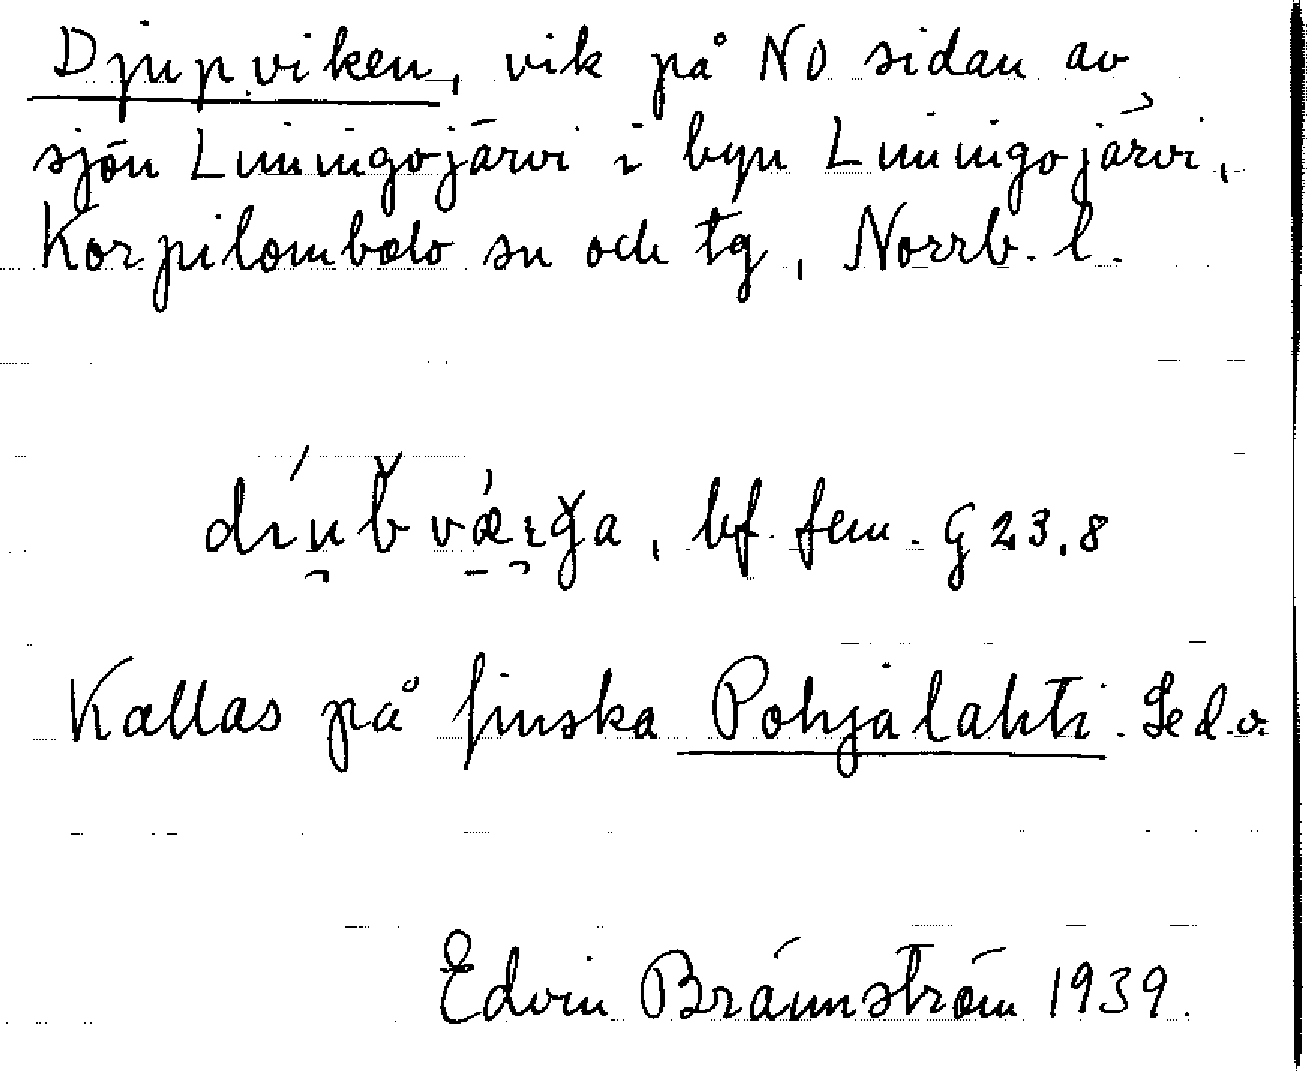 Djupviken, vik på NO sidan av
sjön Liviningojärvi i byn Liviningojärvi,
Korpilombolo sn och tg, Norrb. l.
bf. fem. G 23.8
Kallas på finska Pohjalahti. Se d.o.
Edvin Brännström 1939.